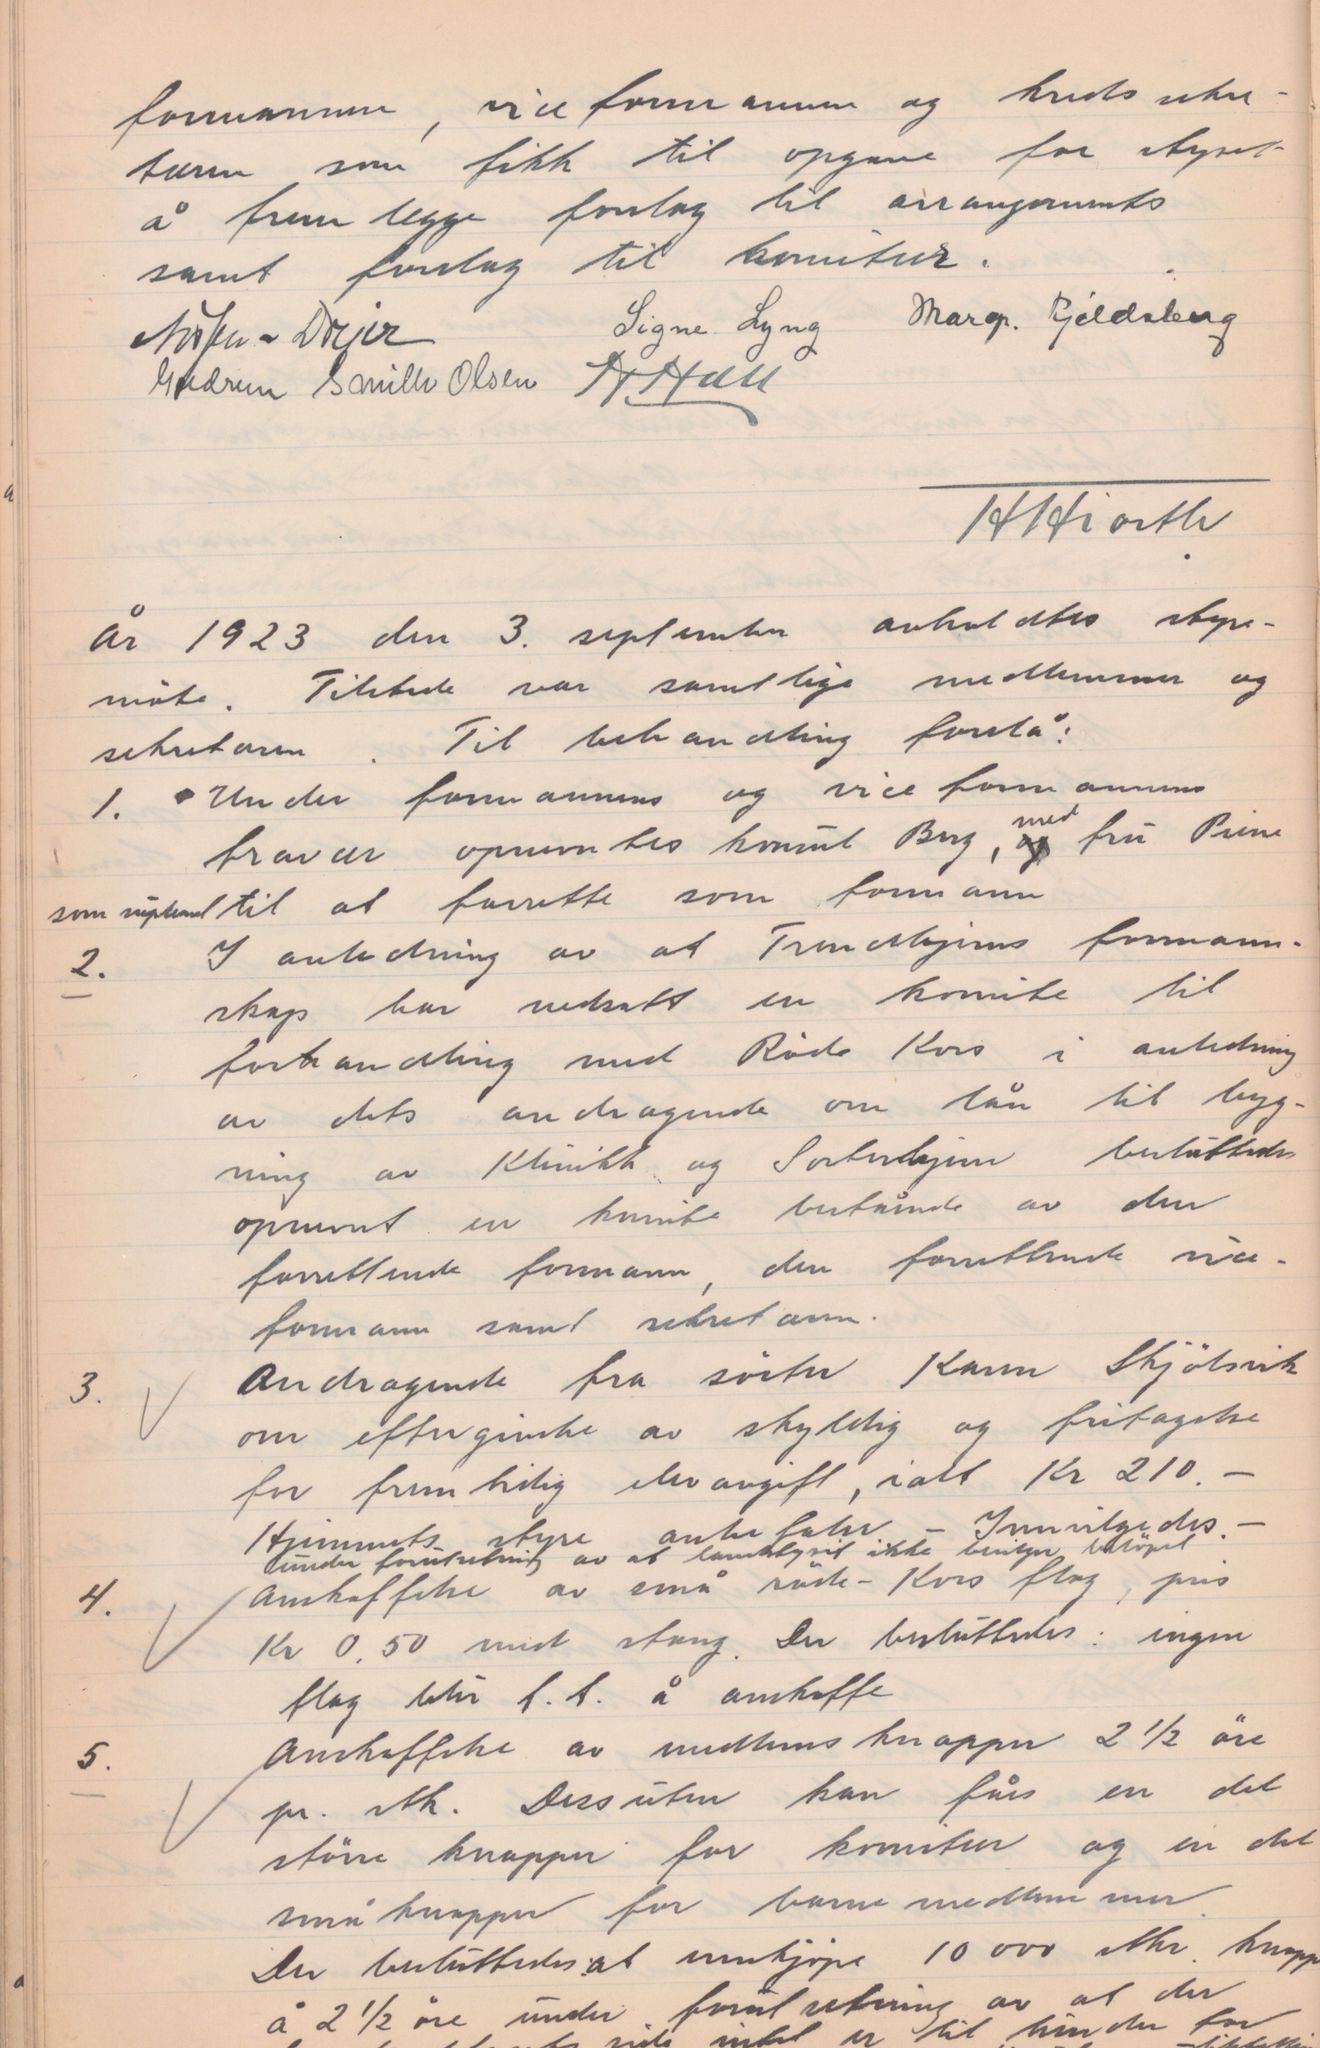 formannen, viceformannen og kredssekre-
tæren som fikk til opgave for styret
å fremlegge forslag til arrangements
samt forslag til komiteer.
Signe Lyng Marg. Kjeldsberg
Gudrun Smith Olsen H. Hall
H Hiorth
År 1923 den 3. september avholdtes styre-
möte. Tilstede var samtlige medlemmer og
sekretæren. Til behandling forelå:
1. Under formannens og viceformannens
fravær opnevntes konsul Berg, med fru Piene
som suppleant til at forrette som formann
2. I anledning av at Trondhjems formann-
skap har nedsatt en komite til
forhandling med Röde Kors i anledning
av dets andragende om lån til byg-
ning av Klinikk og Sösterhjem besluttedes
opnevnt en komite bestående av den
forrettende formann, den forrettende vice-
formann samt sekretæren.
3. Andragende fra söster Karen Skjölsvik
om eftergivelse av skyldig og fritagelse
for fremtidig elevavgift, ialt Kr 210.-
Hjemmets styre anbefaler - Innvilgedes.-
under forutsetning av at landsstyret ikke beslutter
4. Anskaffelse av små röde-Kors flag, pris
Kr 0.50 med stang. Der besluttedes: ingen
flag blir f.t. å anskaffe
5. Anskaffelse av medlemsknapper 2 1/2 öre
pr. stk. Dessuten kan fåes en del
större knapper for komiteer og en del
små knapper for barnemedlemmer.
Der besluttedes at innkjöpe 10 000 stkr. knapper
á 2 1/2 öre under forutsetning av at der
intet er til hinder for